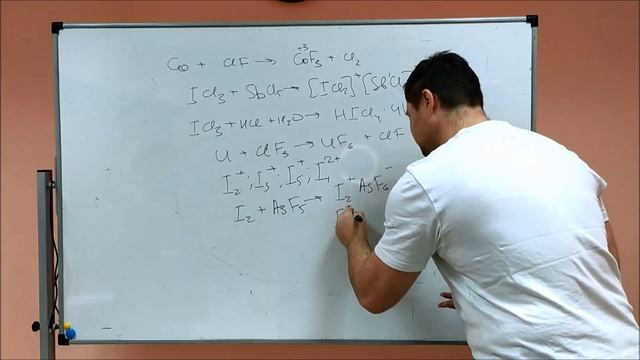 Co + ClF → CoF₃⁺³ + Cl₂
ICl₃ + SbCl₅ → [ICl₂]⁺[SbCl
ICl₃ + HCl + H₂O → HICl₄·4
U + ClF₃ → UF₆ + ClF
I₂⁺; I₃⁺; I₅⁺; I₄²⁺
I₂ + AsF₅ → I₂⁺AsF₆⁻